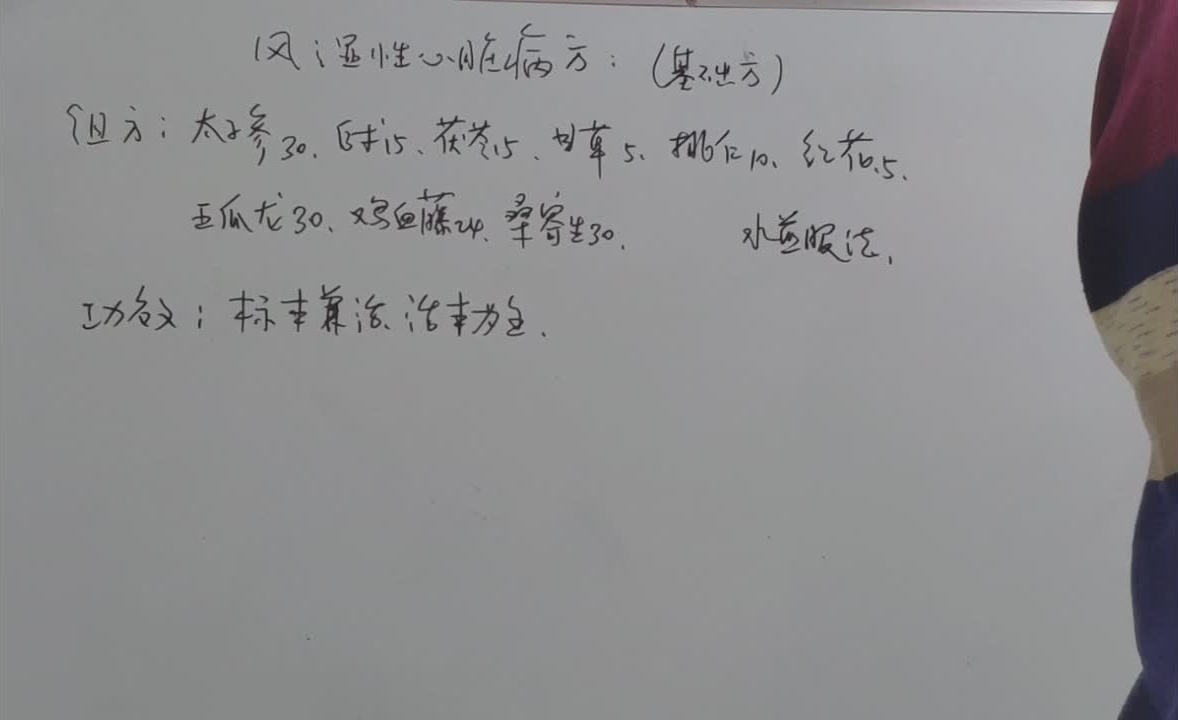 风湿性心脏病方：（基础方）
组方：太子参30、白术15、茯苓15、甘草5、桃仁10、红花5、
五爪龙30、鸡血藤24、桑寄生30、 水煎服法、
功效：标本兼治、治本为主.